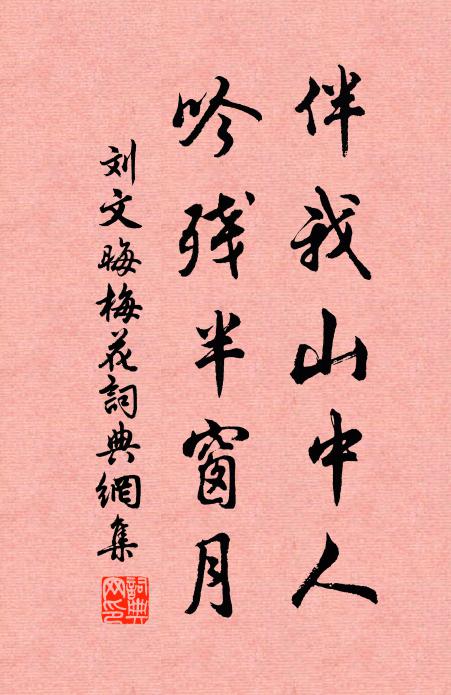 伴我山中人
吟残半窗月
刘文晦梅花詞典網集
詞典網印